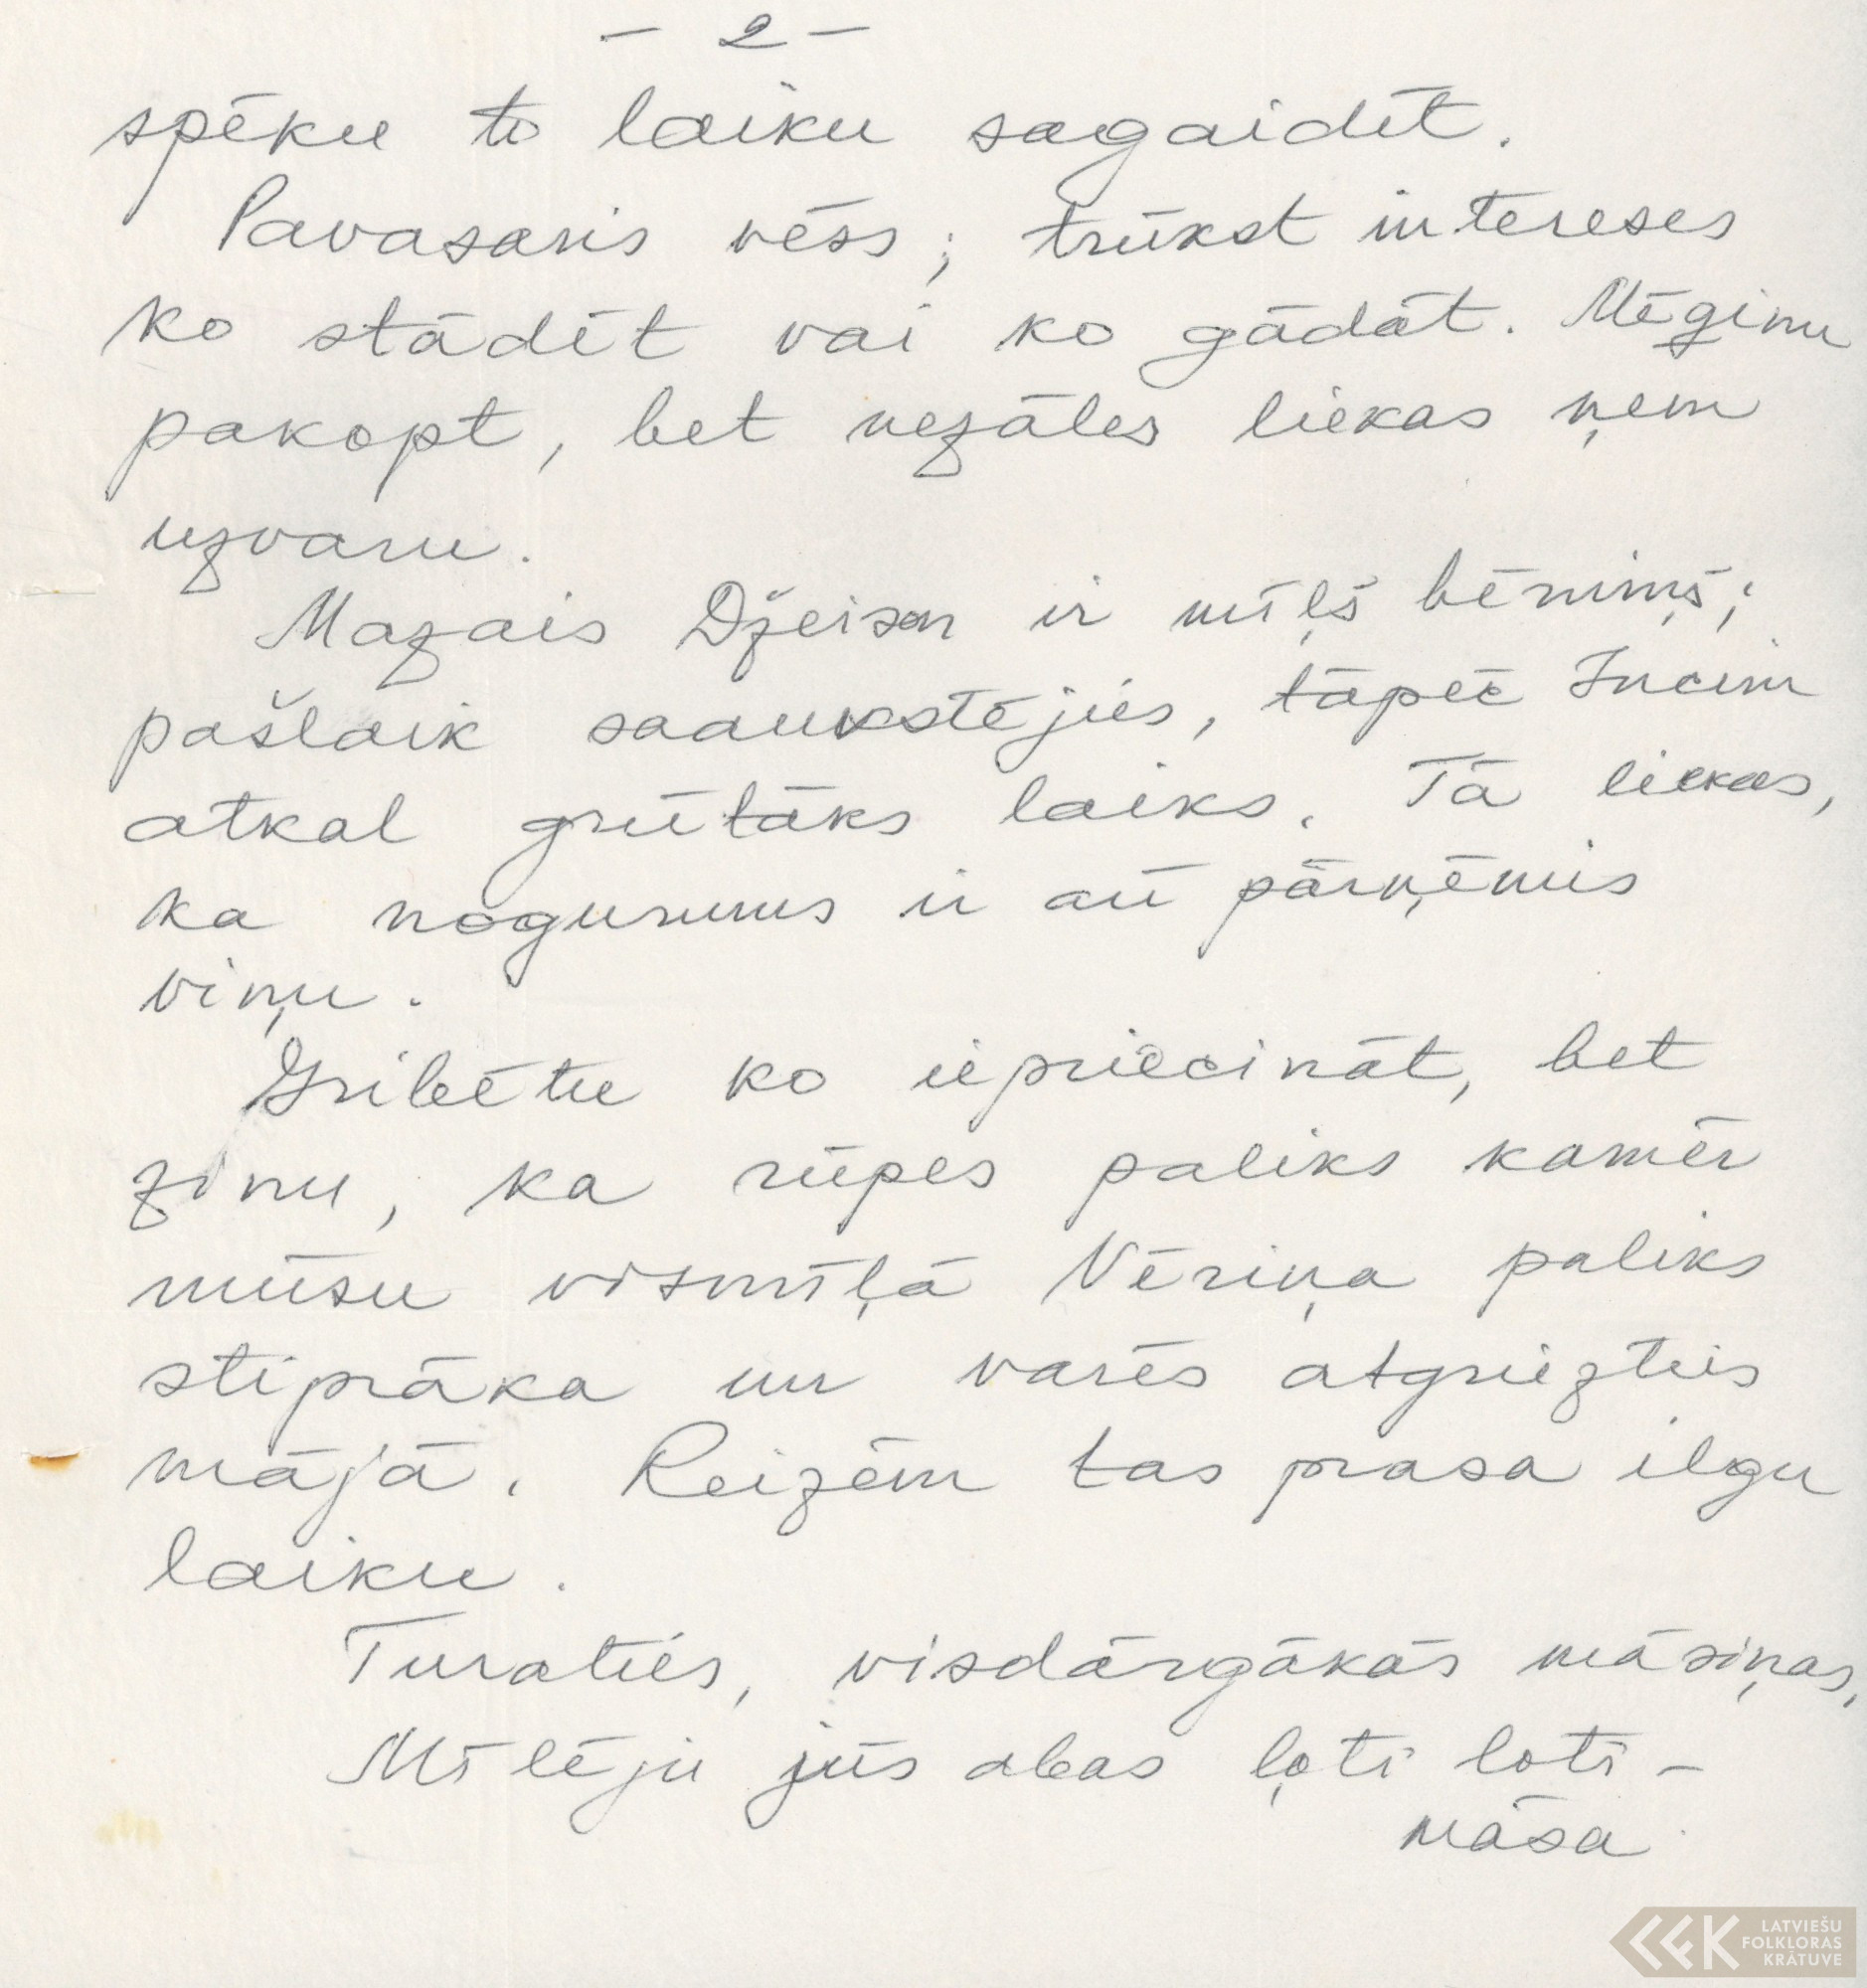 - 2 -
spēku to laiku sagaidīt.
Pavasaris vēss; trūkst intereses
ko stādīt vai ko gādāt. Mēģinu
pakopt, bet nezāles liekas ņem
uzvaru.
Mazais Džeison ir mīļš bērniņš;
pašlaik saaukstējies, tāpēc Incim
atkal grūtāks laiks. Tā liekas,
ka nogurums ir arī pārņēmis
viņu.
Gribētu ko iepriecināt, bet
zinu, ka rūpes paliks kamēr
mūsu vismīļā Vēriņa paliks
stiprāka un varēs atgriezties
mājā. Reizēm tas prasa ilgu
laiku.
Turaties, visdārgākās māsiņas,
Mīlēju jūs abas ļoti loti -
māsa
LATVIEŠU
FOLKLORAS
KRĀTUVE